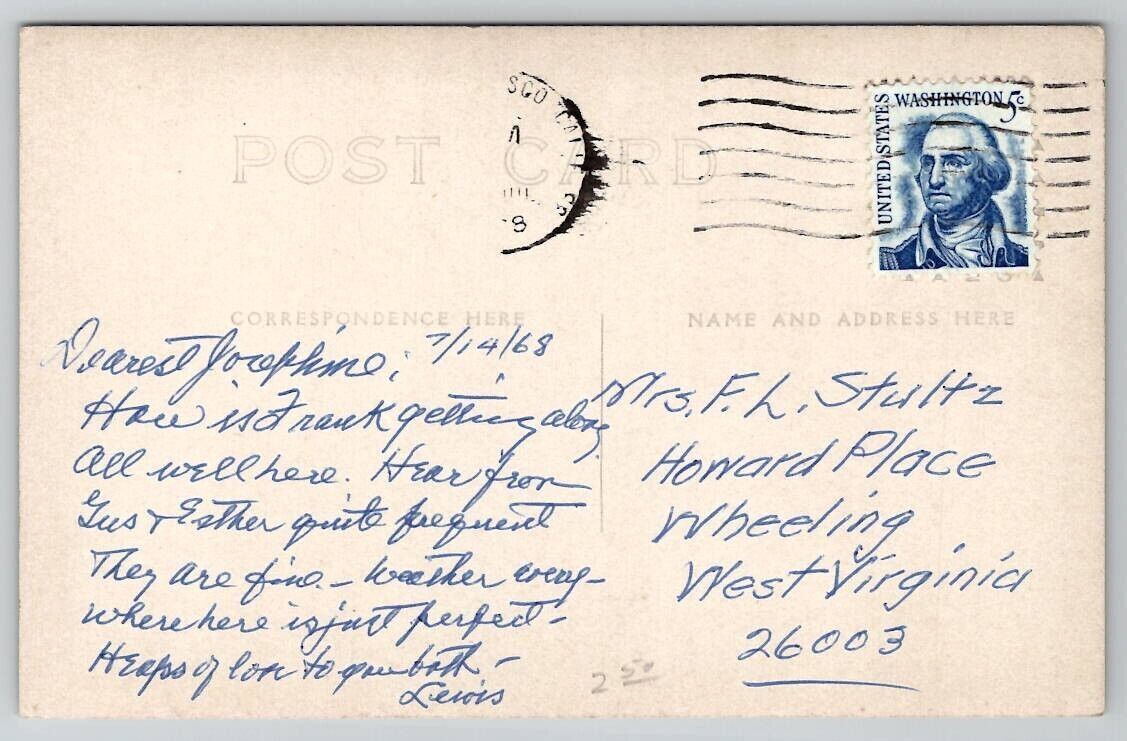 POST CARD
SCO CAL
JUL
8
UNITED STATES
WASHINGTON 5c
CORRESPONDENCE HERE
NAME AND ADDRESS HERE
Dearest Josephine; 7/14/68
How is Frank getting along
All well here. Hear from
Gus & Esther quite frequent
They are fine – Weather every-
where here is just perfect –
Heaps of love to you both –
Lewis
Mrs. F. L. Stultz
Howard Place
Wheeling
West Virginia
26003
2 50